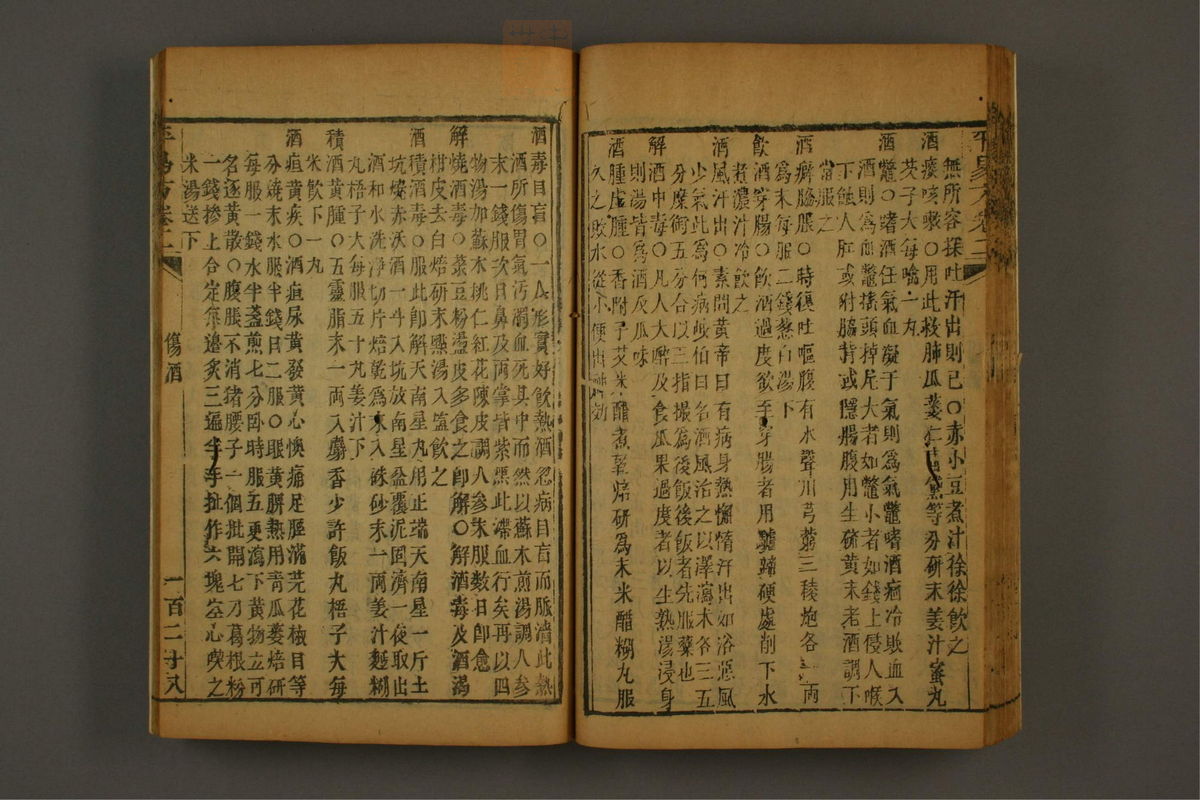 無所容探吐汗出則已○赤小豆煮汁徐徐飲之
酒痰咳嗽○用此救肺瓜蔞仁青黛等分研末姜汁蜜丸
芡子大每噙一丸
酒鱉○嗜酒任氣血凝于氣則為氣鱉嗜酒痼冷敗血入
酒則為血鱉搖頭掉尾大者如鱉小者如錢上侵人喉
下蝕人肛或附脇背或隱腸腹用生硫黃末老酒調下
常服之
酒癖脇脹○時復吐嘔腹有水聲川芎莪三稜炮各一兩
為末每服二錢葱白湯下
飲酒穿腸○飲酒過度欲至穿腸者用驢蹄硬處削下水
煮濃汁冷飲之
酒風汗出○素問黃帝曰有病身熱懈惰汗出如浴惡風
少氣此為何病岐伯曰名酒風治之以澤瀉术各三五
分麋銜五分合以三指撮為後飯後飯者先服藥也
解酒中毒○凡人大醉及食瓜果過度者以生熟湯浸身
則湯皆為酒及瓜味
酒腫虛腫○香附子艾米醋煮乾焙研為末米醋糊丸服
久之敗水從小便出神効
酒毒目盲○一人形實好飲熱酒忽病目盲而脈濇此熱
酒所傷胃氣汚濁血死其中而然以蘇木煎湯調人參
末一錢服次日鼻及兩掌皆紫黑此滯血行矣再以四
物湯加蘇木桃仁紅花陳皮調人參末服數日卽愈
解燒酒毒○菉豆粉盪皮多食之卽解○解酒毒及酒渴
柑皮去白焙研末點湯入鹽飲之
酒積酒毒○服此卽解天南星丸用正端天南星一斤土
坑燒赤沃酒一斗入坑放南星盆覆泥固濟一夜取出
酒和水洗淨切片焙乾為末入硃砂末一兩姜汁麵糊
丸梧子大每服五十丸姜汁下
積酒黃腫○五靈脂末一兩入麝香少許飯丸梧子大每
米飲下一丸
酒疸黃疾○酒疸尿黃發黃心懊痛足脛滿芫花椒目等
分燒末水服半錢日二服○眼黃胕熱用青瓜蔞焙研
每服一錢水半盞煎七分臥時服五更瀉下黃物立可
名逐黃散○腹脹不消猪腰子一個批開七刀葛根粉
一錢摻上合定每邊炙三遍半手扯作六塊空心喫之
米湯送下
傷酒
一百二十八